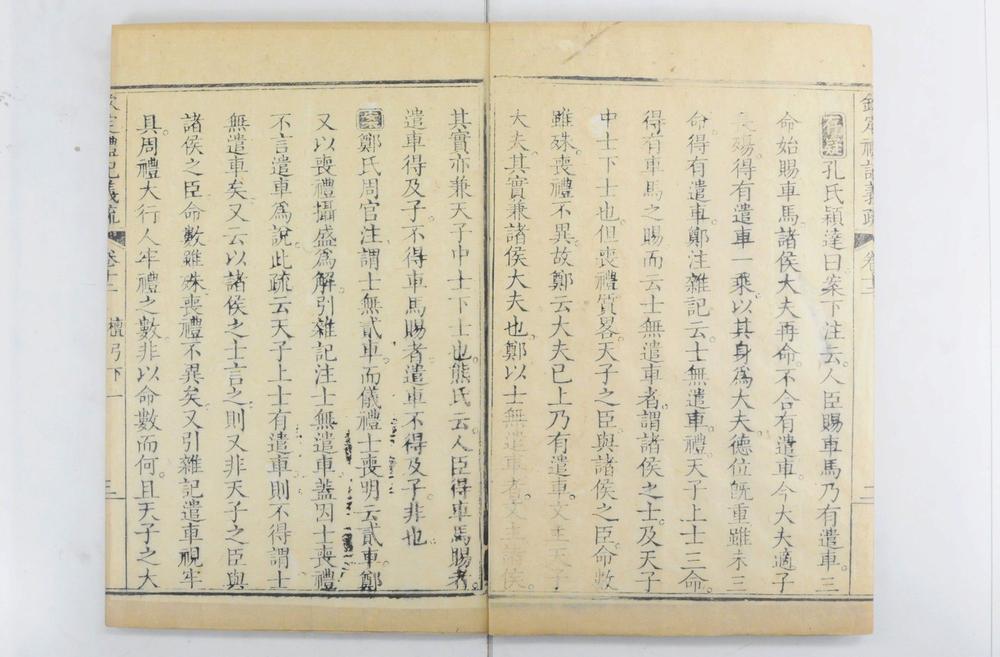 欽定禮記義疏 卷十二 二
存疑 孔氏穎達曰案下注云人臣賜車馬乃有遣車三
命始賜車馬諸侯大夫再命不合有遣車今大夫適子
長殤得有遣車一乘以其身為大夫德位既重雖未三
命得有遣車鄭注雜記云士無遣車禮天子上士三命
得有車馬之賜而云士無遣車者謂諸侯之士及天子
中士下士也但喪禮質畧天子之臣與諸侯之臣命數
雖殊喪禮不異故鄭云大夫已上乃有遣車文主天子
大夫其實兼諸侯大夫也鄭以士無遣車者文主諸侯
其實亦兼天子中士下士也熊氏云人臣得車馬賜者
遣車得及子不得車馬賜者遣車不得及子非也
案 鄭氏周官注謂士無貳車而儀禮士喪明云貳車鄭
又以喪禮攝盛為解引雜記注士無遣車蓋因士喪禮
不言遣車為說此疏云天子上士有遣車則不得謂士
無遣車矣又云以諸侯之士言之則又非天子之臣與
諸侯之臣命數雖殊喪禮不異矣又引雜記遣車視牢
具周禮大行人牢禮之數非以命數而何且天子之大
欽定禮記義疏 卷十二 檀弓下一 三